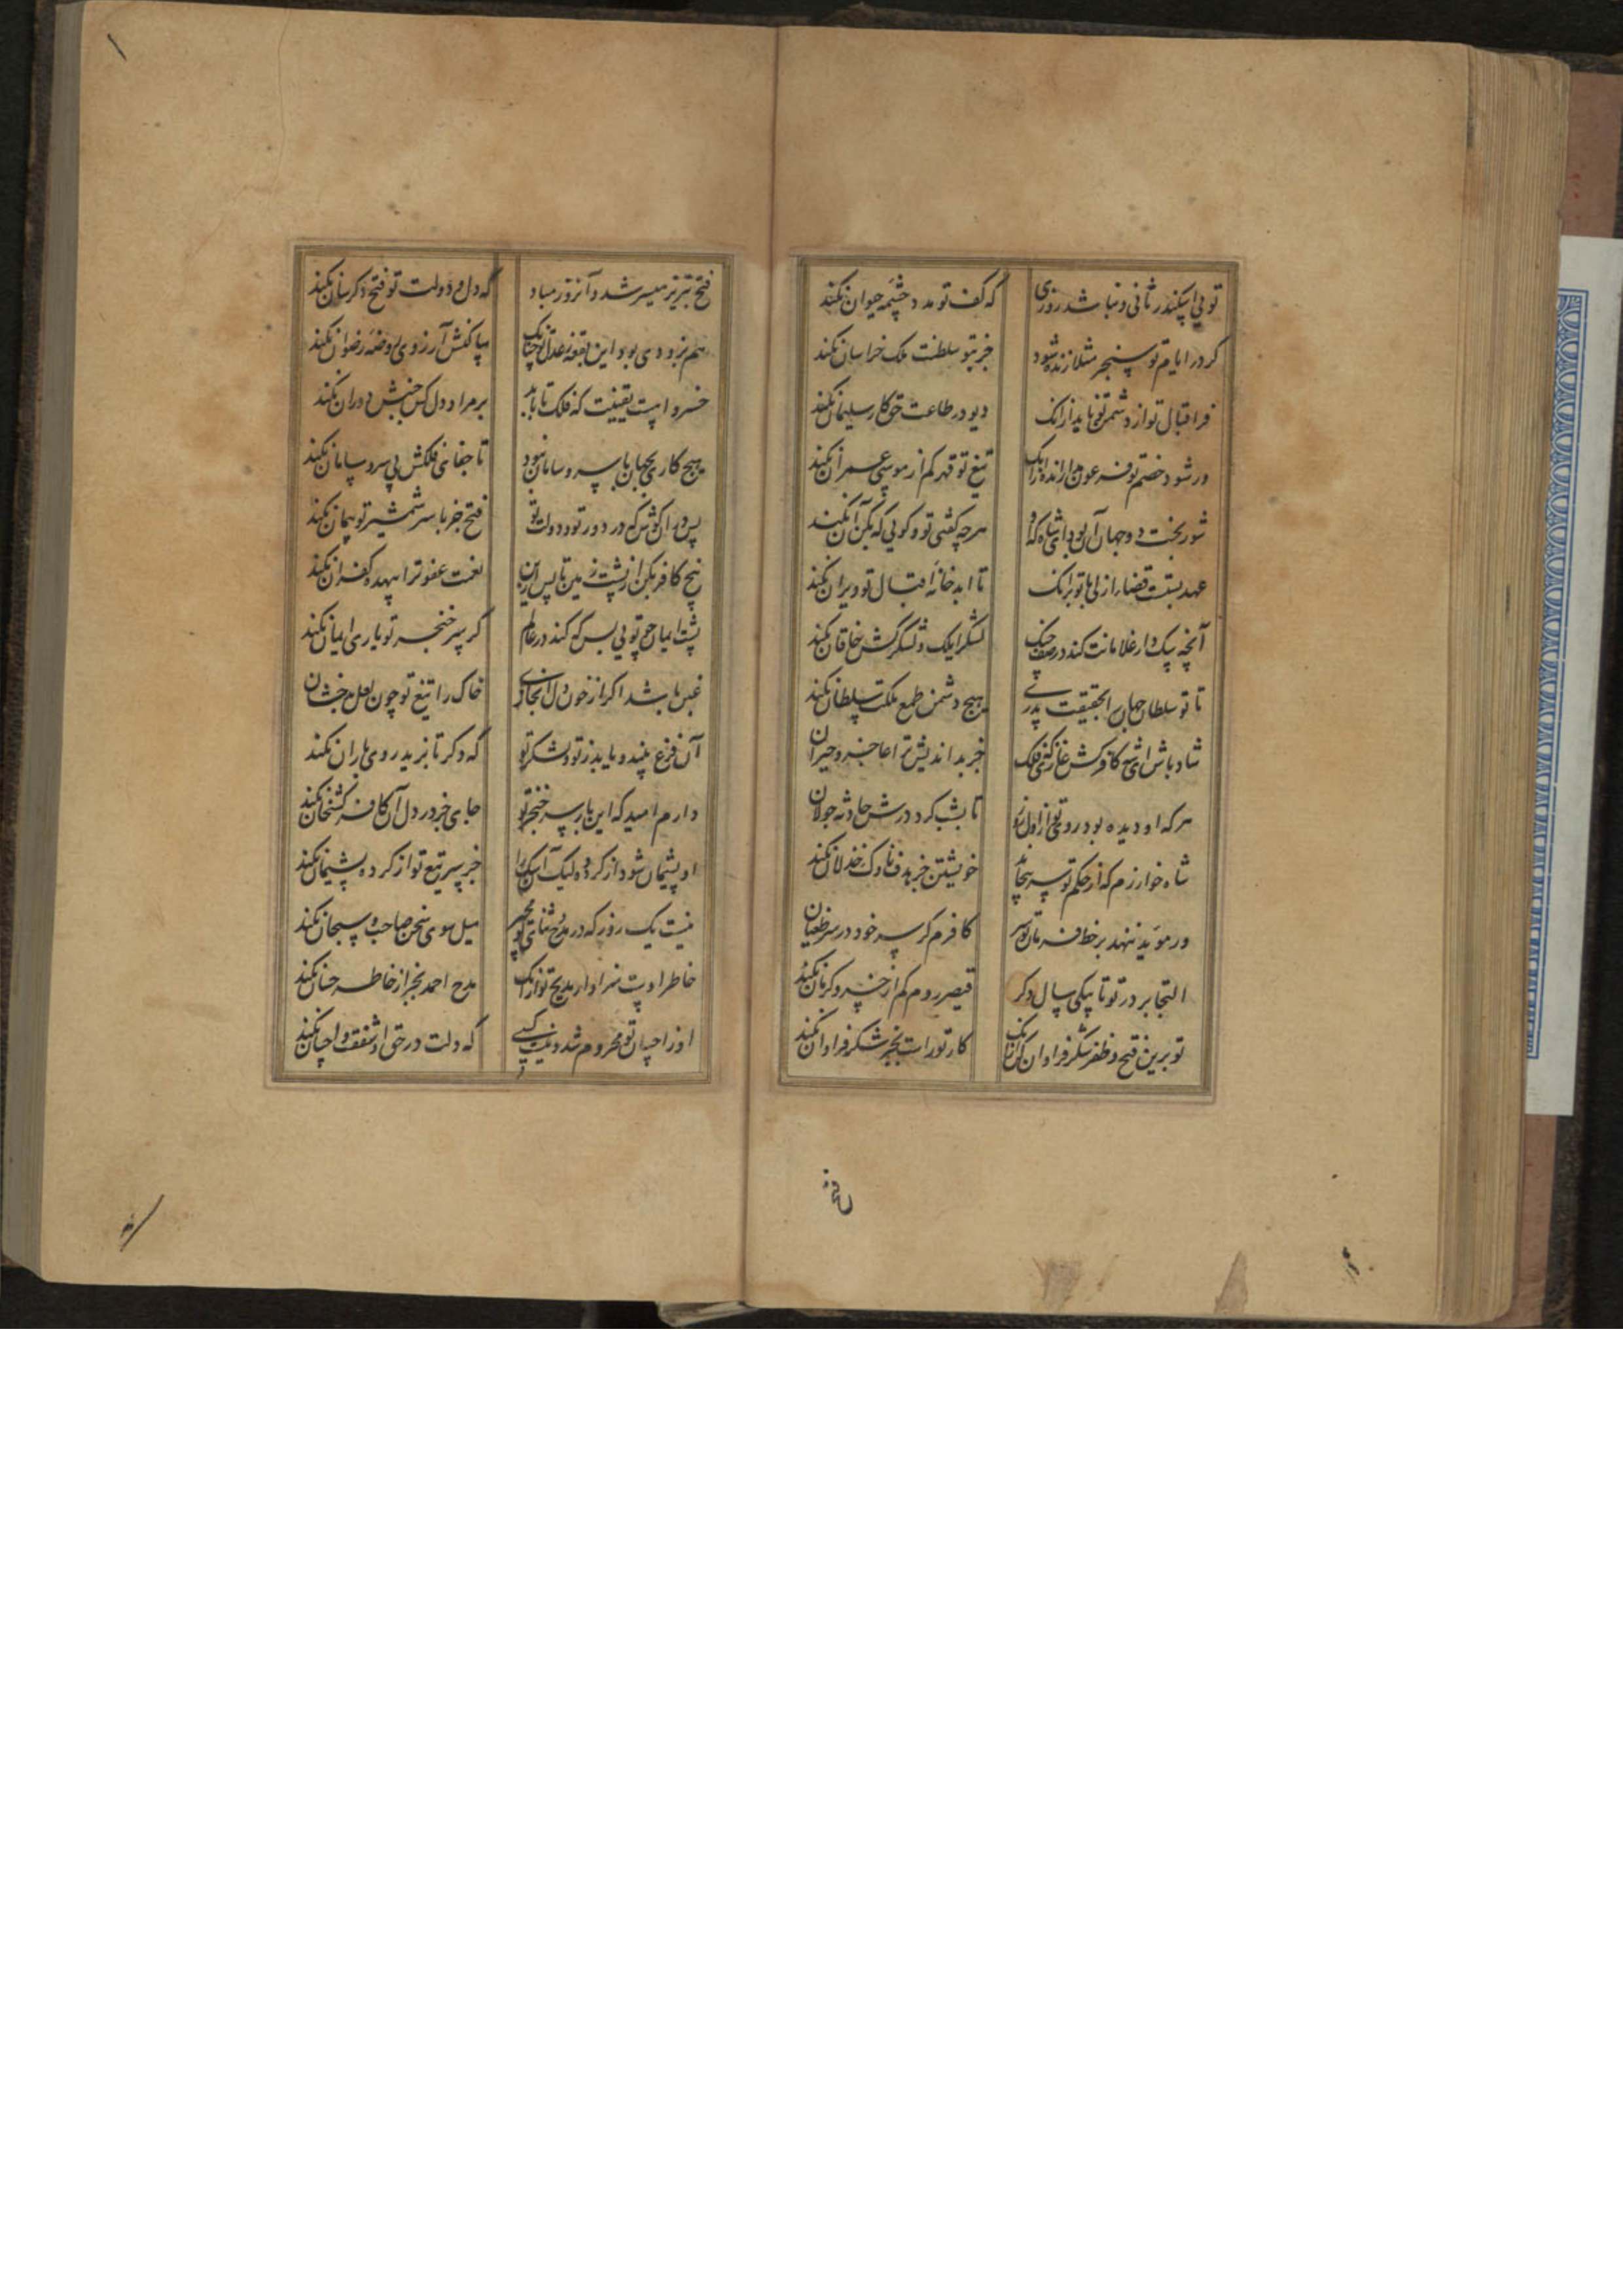 تویی اسکندر ثانی و نباشد روزی که کف تو مدد چشمه حیوان نکند
کر در ایام تو سنجر مثلا زنده شود جز بتو سلطنت ملک خراسان نکند
فر اقبال تو از دشمن تو ناید از انک دیو در طاعت حق کار سلیمان نکند
ور شود خصم تو فرعون تیغ تو قهر کم از موسی عمران نکند
شور بخت دو جهان آن بود ای شاه که او هرچه کفتی تو و کویی که بکن آن نکند
عهد بستت قضا از لی با تو بر انک تا ابد خانه اقبال تو ویران نکند
آنچه یک دار غلامانت کند در صف جنک لشکر ایلک و لشکرکش خاقان نکند
تا تو سلطان جهان را بحقیقت پدری هیچ دشمن طمع ملکت سلطان نکند
شاد باش ای شه کافرکش غازی که فلک جز بداندیش ترا عاجز و حیران
هرکه او دیده بود روی تو از اول روز تا بشب کرد درش حادثه جولان
شاه خوارزم که از حکم تو سر پیچاند خویشتن جز هدف ناوک خذلان نکند
ور موید ننهد بر خط فرمان تو سر کافرم کر سر خود در سر طغیان
التجا بر در تو تا بیکی سال دکر قیصر روم کم از خسرو کرمان نکند
تو برین فتح و ظفر شکر فراوان کن از انک کار تو راست بجز شکر فراوان نکند
فتح
فتح تبریز میسر شد و آنروز مباد که دل و دولت تو فتح دکرسان نکند
هم بزودی بود این بقعه ز عدل تو چنانک ساکنش آرزوی روضه رضوان نکند
خسروا هست یقینت که فلک تا باید بر مراد دل کس جنبش دوران نکند
هیچ کاری بجهان با سر و سامان نبود تا جفای فلکش بی سر و سامان نکند
پس در آن کوش که در دور تو و دولت تو فتح جز با سر شمشیر تو پیمان نکند
بیخ کافر بکن از پشت زمین تا پس ازین نعمت عفو ترا بیهده کفران نکند
پشت ایمان چو تویی پس که کند در عالم کر سر خنجر تو یاری ایمان نکند
غبن باشد اکر از خون دل ابخازی خاک را تیغ تو چون لعل بدخشان
آن فزع بیند و یابد ز تو و لشکر تو که دکر تا بزید روی باران نکند
دارم امید که این بار سر خنجر تو جای جز در دل آن کافر کشخان نکند
او پشیمان شود از کرده ولیک آنکس را جز سر تیغ تو از کرده پشیمان نکند
نیست یک روز که در مدح و ثنای تو مجیر میل سوی سخن صاحب و سحبان نکند
خاطر اوست سزاوار مدیح تو از انک مدح احمد بجز از خاطر حسان نکند
او ز احسان تو محروم شد و نیست کسی که دلت در حق او شفقت و احسان نکند